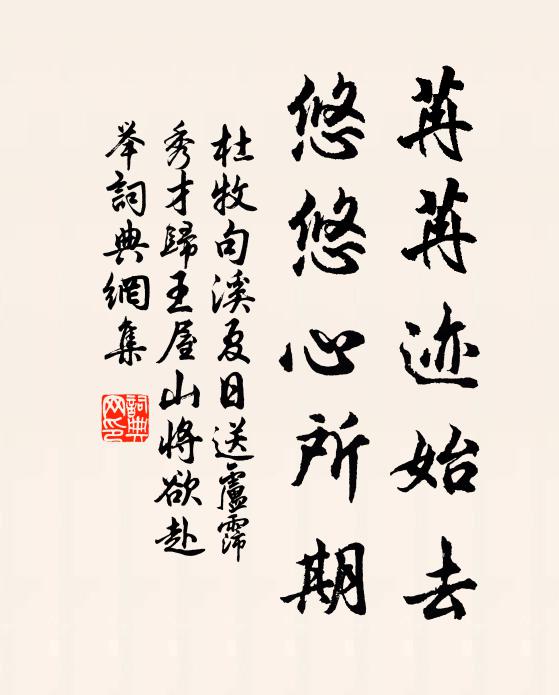 苒苒迹始去
悠悠心所期
杜牧句溪夏日送盧霈
秀才歸王屋山將欲赴
举詞典網集
詞典網印